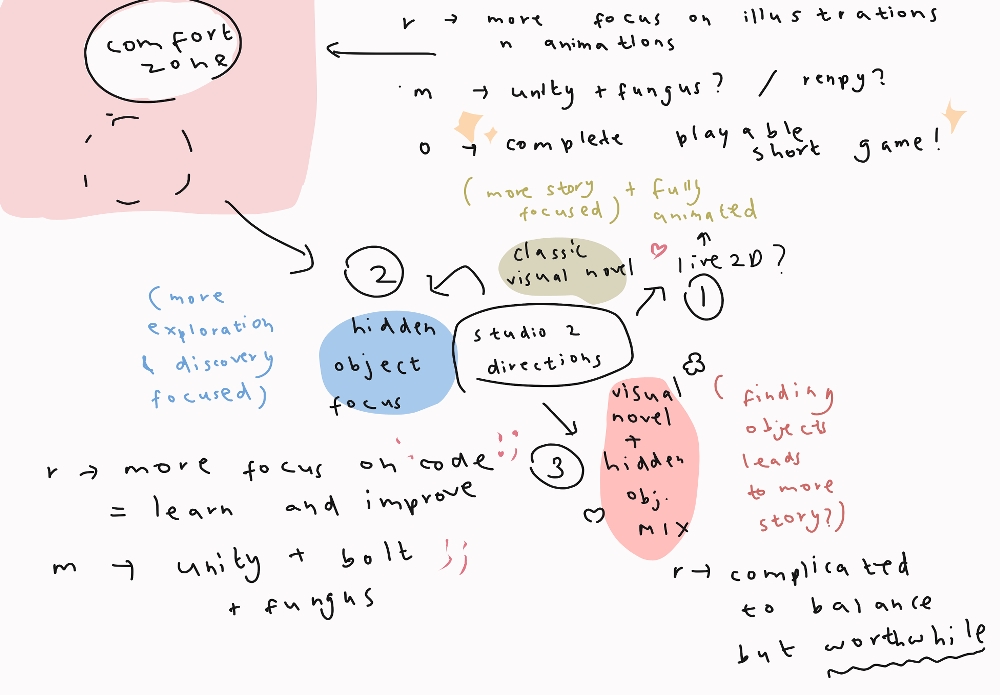 comfort
zone
r → more focus on illustrations
n animations
m → unity + fungus? / renpy?
o → complete playable
short game!
(more story
focused) + fully
animated
↑
live 2D?
1
classic
visual novel
studio 2
directions
2
hidden
object
focus
(more
exploration
& discovery
focused)
r → more focus on code ;;
= learn and improve
m → unity + bolt ;;
+ fungus
3
visual
novel
+
hidden
obj.
mix
(finding
objects
leads
to more
story?)
r → complicated
to balance
but worthwhile